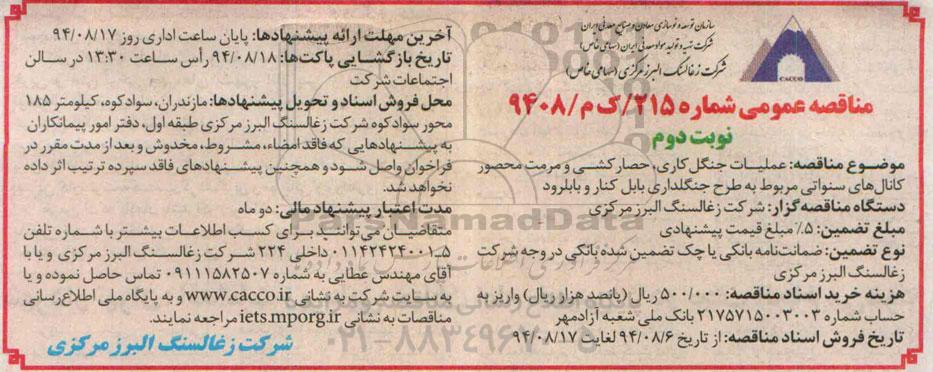 سازمان توسعه و نوسازی معادن و صنایع معدنی ایران
شرکت تهیه و تولید مواد معدنی ایران (سهامی خاص)
شرکت زغالسنگ البرز مرکزی (سهامی خاص)
CACCO
مناقصه عمومی شماره ۲۱۵/ک م/۹۴۰۸
نوبت دوم
موضوع مناقصه: عملیات جنگل کاری، حصار کشی و مرمت محصور
کانال‌های سنواتی مربوط به طرح جنگلداری بابل کنار و بابلرود
دستگاه مناقصه گزار: شرکت زغالسنگ البرز مرکزی
مبلغ تضمین: ۵٪ مبلغ قیمت پیشنهادی
نوع تضمین: ضمانت‌نامه بانکی یا چک تضمین شده بانکی در وجه شرکت
زغالسنگ البرز مرکزی
هزینه خرید اسناد مناقصه: ۵۰۰/۰۰۰ ریال (پانصد هزار ریال) واریز به
حساب شماره ۲۱۷۵۷۱۵۰۰۳۰۰۳ بانک ملی شعبه آزادمهر
تاریخ فروش اسناد مناقصه: از تاریخ ۹۴/۰۸/۶ لغایت ۹۴/۰۸/۱۷
آخرین مهلت ارائه پیشنهادها: پایان ساعت اداری روز ۹۴/۰۸/۱۷
تاریخ بازگشایی پاکت‌ها: ۹۴/۰۸/۱۸ رأس ساعت ۱۳:۳۰ در سالن
اجتماعات شرکت
محل فروش اسناد و تحویل پیشنهادها: مازندران، سوادکوه، کیلومتر ۱۸۵
محور سوادکوه شرکت زغالسنگ البرز مرکزی طبقه اول، دفتر امور پیمانکاران
به پیشنهادهایی که فاقد امضاء، مشروط، مخدوش و بعد از مدت مقرر در
فراخوان واصل شود و همچنین پیشنهادهای فاقد سپرده ترتیب اثر داده
نخواهد شد.
مدت اعتبار پیشنهاد مالی: دو ماه
متقاضیان می‌توانند برای کسب اطلاعات بیشتر با شماره تلفن
۵-۰۱۱۴۲۴۲۴۰۰۱ داخلی ۲۲۴ شرکت زغالسنگ البرز مرکزی و یا با
آقای مهندس عطایی به شماره ۰۹۱۱۱۵۸۲۵۰۷ تماس حاصل نموده و یا
به سایت شرکت به نشانی www.cacco.ir و به پایگاه ملی اطلاع رسانی
مناقصات به نشانی iets.mporg.ir مراجعه نمایند.
شرکت زغالسنگ البرز مرکزی